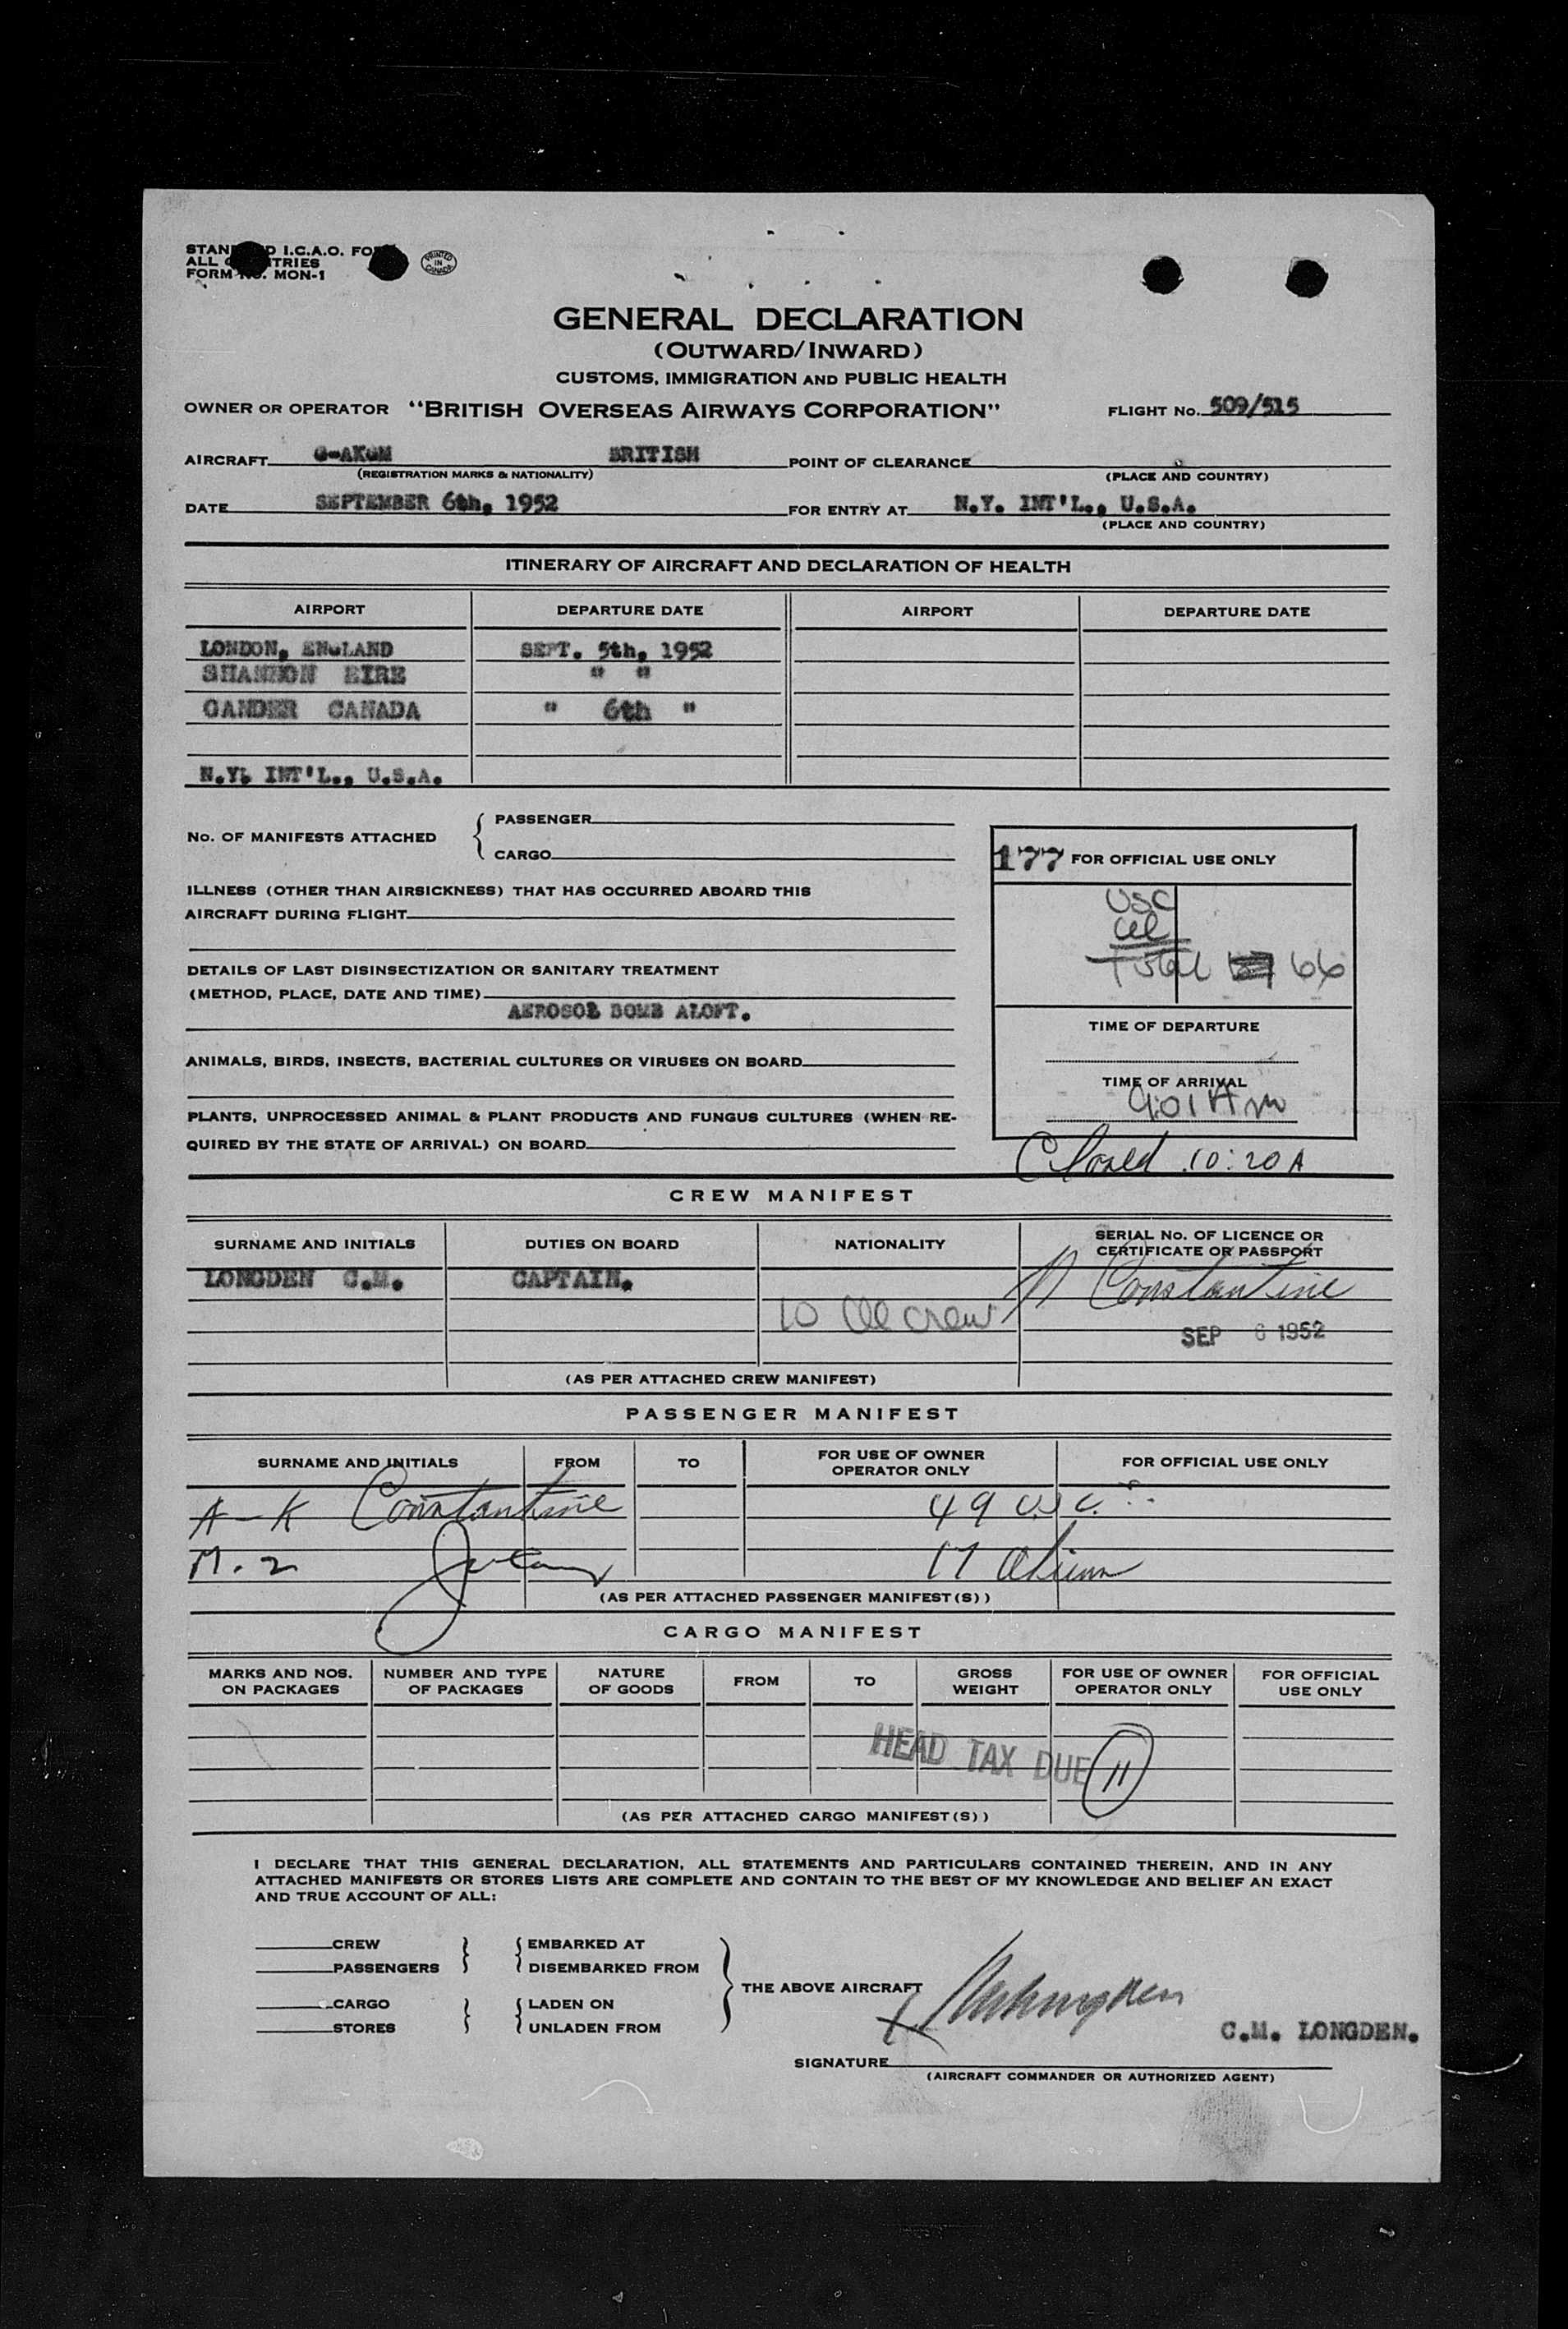 STAND D I.C.A.O. FO
ALL TRIES
FORM NO. MON-1
PRINTED IN CANADA
GENERAL DECLARATION
(OUTWARD/INWARD)
CUSTOMS, IMMIGRATION AND PUBLIC HEALTH
OWNER OR OPERATOR "BRITISH OVERSEAS AIRWAYS CORPORATION" FLIGHT No. 509/515
AIRCRAFT G-AKGM BRITISH POINT OF CLEARANCE
(REGISTRATION MARKS & NATIONALITY) (PLACE AND COUNTRY)
DATE SEPTEMBER 6th, 1952 FOR ENTRY AT N.Y. INT'L., U.S.A.
(PLACE AND COUNTRY)
ITINERARY OF AIRCRAFT AND DECLARATION OF HEALTH
AIRPORT DEPARTURE DATE AIRPORT DEPARTURE DATE
LONDON, ENGLAND SEPT. 5th, 1952
SHANNON EIRE " "
GANDER CANADA " 6th "
N.Y. INT'L., U.S.A.
No. OF MANIFESTS ATTACHED
PASSENGER
CARGO
ILLNESS (OTHER THAN AIRSICKNESS) THAT HAS OCCURRED ABOARD THIS
AIRCRAFT DURING FLIGHT
DETAILS OF LAST DISINSECTIZATION OR SANITARY TREATMENT
(METHOD, PLACE, DATE AND TIME)
AEROSOL BOMB ALOFT.
ANIMALS, BIRDS, INSECTS, BACTERIAL CULTURES OR VIRUSES ON BOARD
PLANTS, UNPROCESSED ANIMAL & PLANT PRODUCTS AND FUNGUS CULTURES (WHEN RE-
QUIRED BY THE STATE OF ARRIVAL) ON BOARD
177 FOR OFFICIAL USE ONLY
USC
Total 66
TIME OF DEPARTURE
TIME OF ARRIVAL
9:01 AM
Closed 10:20 A
CREW MANIFEST
SURNAME AND INITIALS DUTIES ON BOARD NATIONALITY SERIAL No. OF LICENCE OR
CERTIFICATE OR PASSPORT
LONGDEN C.M. CAPTAIN. Constantine
10 crew
SEP 6 1952
(AS PER ATTACHED CREW MANIFEST)
PASSENGER MANIFEST
SURNAME AND INITIALS FROM TO FOR USE OF OWNER
OPERATOR ONLY FOR OFFICIAL USE ONLY
A-K Constantine 49 USC.
17 Aliens
(AS PER ATTACHED PASSENGER MANIFEST(S))
CARGO MANIFEST
MARKS AND NOS.
ON PACKAGES NUMBER AND TYPE
OF PACKAGES NATURE
OF GOODS FROM TO GROSS
WEIGHT FOR USE OF OWNER
OPERATOR ONLY FOR OFFICIAL
USE ONLY
HEAD TAX DUE 11
(AS PER ATTACHED CARGO MANIFEST(S))
I DECLARE THAT THIS GENERAL DECLARATION, ALL STATEMENTS AND PARTICULARS CONTAINED THEREIN, AND IN ANY
ATTACHED MANIFESTS OR STORES LISTS ARE COMPLETE AND CONTAIN TO THE BEST OF MY KNOWLEDGE AND BELIEF AN EXACT
AND TRUE ACCOUNT OF ALL:
CREW EMBARKED AT
PASSENGERS DISEMBARKED FROM
THE ABOVE AIRCRAFT
CARGO LADEN ON
STORES UNLADEN FROM
C.M. LONGDEN.
SIGNATURE
(AIRCRAFT COMMANDER OR AUTHORIZED AGENT)